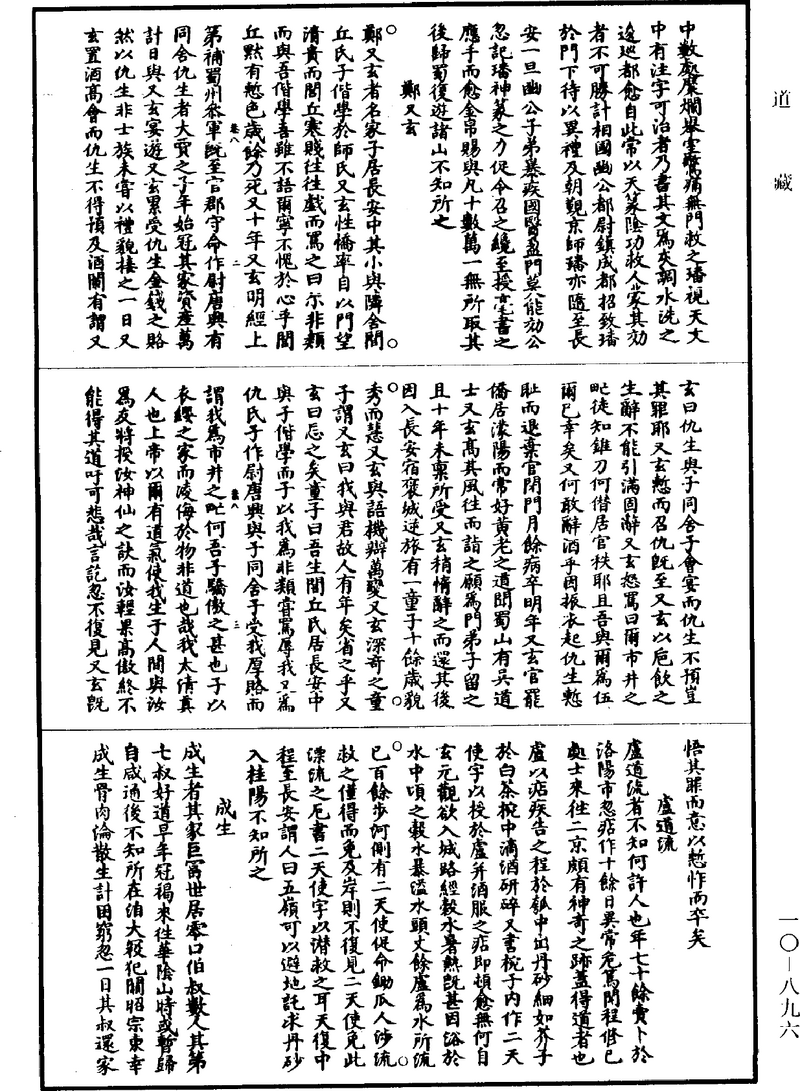 道藏
中數處糜爛舉室驚痛無門救之璠視天文
中有注字可治者乃書其文為灰調水洗之
逡巡都愈自此常以天篆陰功救人蒙其効
者不可勝計相國豳公都尉鎮成都招致璠
於門下待以異禮及朝覲京師璠亦隨至長
安一旦豳公子弟暴疾國醫盈門莫能効公
忽記璠神篆之力促令召之纔至授毫書之
應手而愈金帛賜與凡十數萬一無所取其
後歸蜀復遊諸山不知所之
鄭又玄
鄭又玄者名家子居長安中其小與隣舍閭
丘氏子偕學於師氏又玄性憍率自以門望
清貴而閭丘寒賤往往戲而罵之曰尓非類
而與吾偕學吾雖不語爾寧不愧於心乎閭
丘黙有慙色歲餘乃死又十年又玄明經上
卷八 二
第補蜀州叅軍旣至官郡守命作尉唐興有
同舍仇生者大賈之子年始冠其家資產萬
計日與又玄宴遊又玄累受仇生金錢之賂
然以仇生非士族未嘗以禮貌接之一日又
玄置酒高會而仇生不得預及酒闌有謂又
玄曰仇生與子同舍子會宴而仇生不預豈
其罪耶又玄慙而召仇旣至又玄以巵飲之
生辭不能引滿固辭又玄怒罵曰爾市井之
甿徒知錐刀何僭居官秩耶且吾與爾為伍
爾已幸矣又何敢辭酒乎因振衣起仇生慙
耻而退棄官閉門月餘病卒明年又玄官罷
僑居濛陽而常好黃老之道聞蜀山有吳道
士又玄高其風往而詣之願為門弟子留之
且十年未稟所受又玄稍惰辭之而還其後
因入長安宿襃城逆旅有一童子十餘歲貌
秀而慧又玄與語機辯萬變又玄深奇之童
子謂又玄曰我與君故人有年矣省之乎又
玄曰忘之矣童子曰吾生閭丘氏居長安中
與子偕學而子以我為非類嘗罵辱我又為
仇氏子作尉唐興與子同舍子受我厚賂而
卷八 三
謂我為市井之甿何吾子驕傲之甚也子以
衣纓之家而凌侮於物非道也哉我太清真
人也上帝以爾有道氣使我生于人間與汝
為友將授汝神仙之訣而汝輕果高傲終不
能得其道吁可悲哉言訖忽不復見又玄旣
悟其罪而意以慙怍而卒矣
盧道流
盧道流者不知何許人也年七十餘賣卜於
洛陽市忽痁作十餘日異常危篤聞程修己
處士來往二京頗有神奇之跡蓋得道者也
盧以痁疾告之程於瓢中出丹砂細如芥子
於白茶椀中滴酒研碎又書椀子内作二天
使字以授於盧并酒服之痁即頓愈無何自
玄元觀欲入城路經穀水暑熱旣甚因浴於
水中頃之穀水暴溢水頭丈餘盧為水所流
已百餘步河側有二天使促命鋤瓜人涉流
救之僅得而免及岸則不復見二天使免此
漂流之厄書二天使字以潛救之耳天復中
程至長安謂人曰五嶺可以避地託求丹砂
入桂陽不知所之
成生
成生者其家巨富世居零口伯叔數人其弟
七叔好道早年冠褐來往華陰山時或暫歸
自咸通後不知所在洎大㓂犯闕昭宗東幸
成生骨肉淪散生計困窮忽一日其叔還家
一〇—八九六